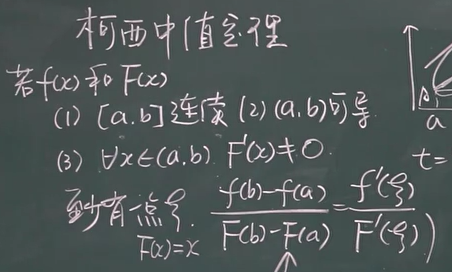 柯西中值定理
若f(x)和F(x)
(1) [a.b]连续 (2) (a,b)可导
(3) ∀x∈(a,b) F'(x)≠0.
至少有一点ξ. (f(b)-f(a))/(F(b)-F(a)) = f'(ξ)/F'(ξ)
F(x)=x
A
a
t=